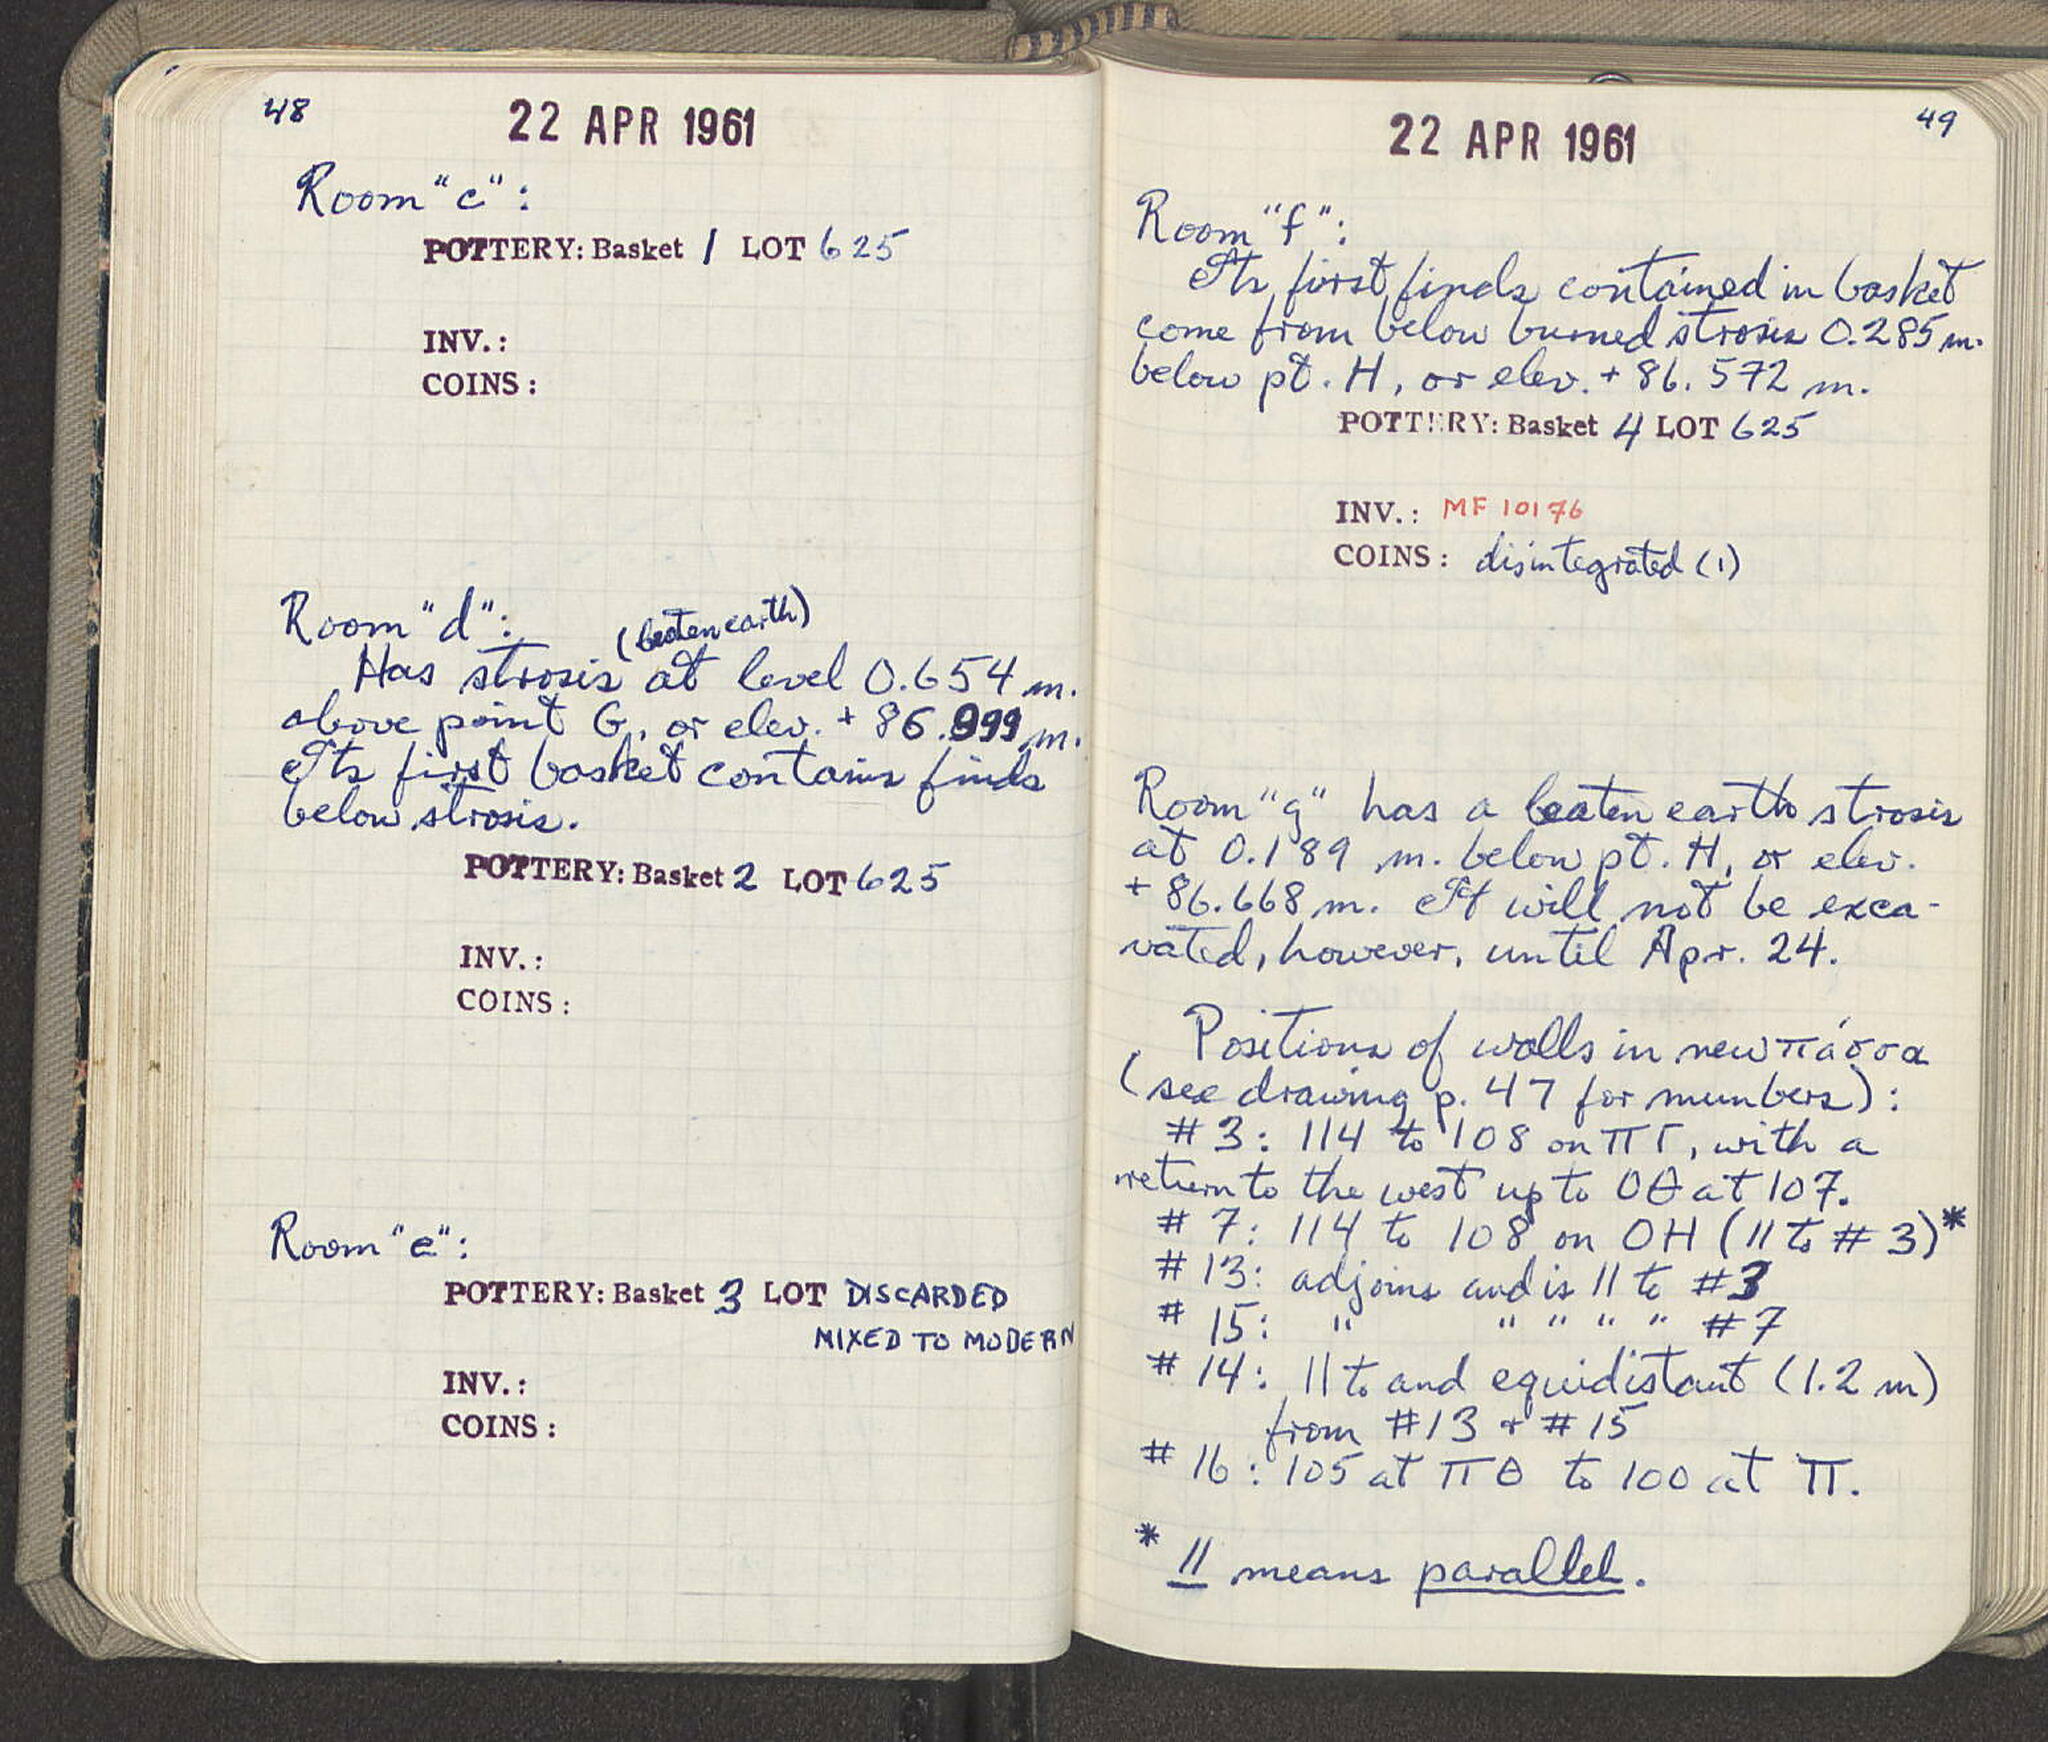 48
22 APR 1961
Room "c":
POTTERY: Basket 1 LOT 625
INV.:
COINS:
Room "d":
(beaten earth)
Has strosis at level 0.654 m.
above point G, or elev. + 86.999 m.
Its first basket contains finds
below strosis.
POTTERY: Basket 2 LOT 625
INV.:
COINS:
Room "e":
POTTERY: Basket 3 LOT DISCARDED
MIXED TO MODERN
INV.:
COINS:
49
22 APR 1961
Room "f":
Its first finds contained in basket
come from below burned strosis 0.285 m.
below pt. H, or elev. + 86.572 m.
POTTERY: Basket 4 LOT 625
INV.: MF 10176
COINS: disintegrated (1)
Room "g" has a beaten earth strosis
at 0.189 m. below pt. H, or elev.
+ 86.668 m. It will not be exca-
vated, however, until Apr. 24.
Positions of walls in new πάσσα
(see drawing p. 47 for numbers):
# 3: 114 to 108 on ΠΓ, with a
return to the west up to ΟΘ at 107.
# 7: 114 to 108 on ΟΗ (|| to # 3)*
# 13: adjoins and is || to #3
# 15: " " " " " #7
# 14: || to and equidistant (1.2 m)
from #13 + #15
# 16: 105 at ΠΘ to 100 at Π.
* || means parallel.